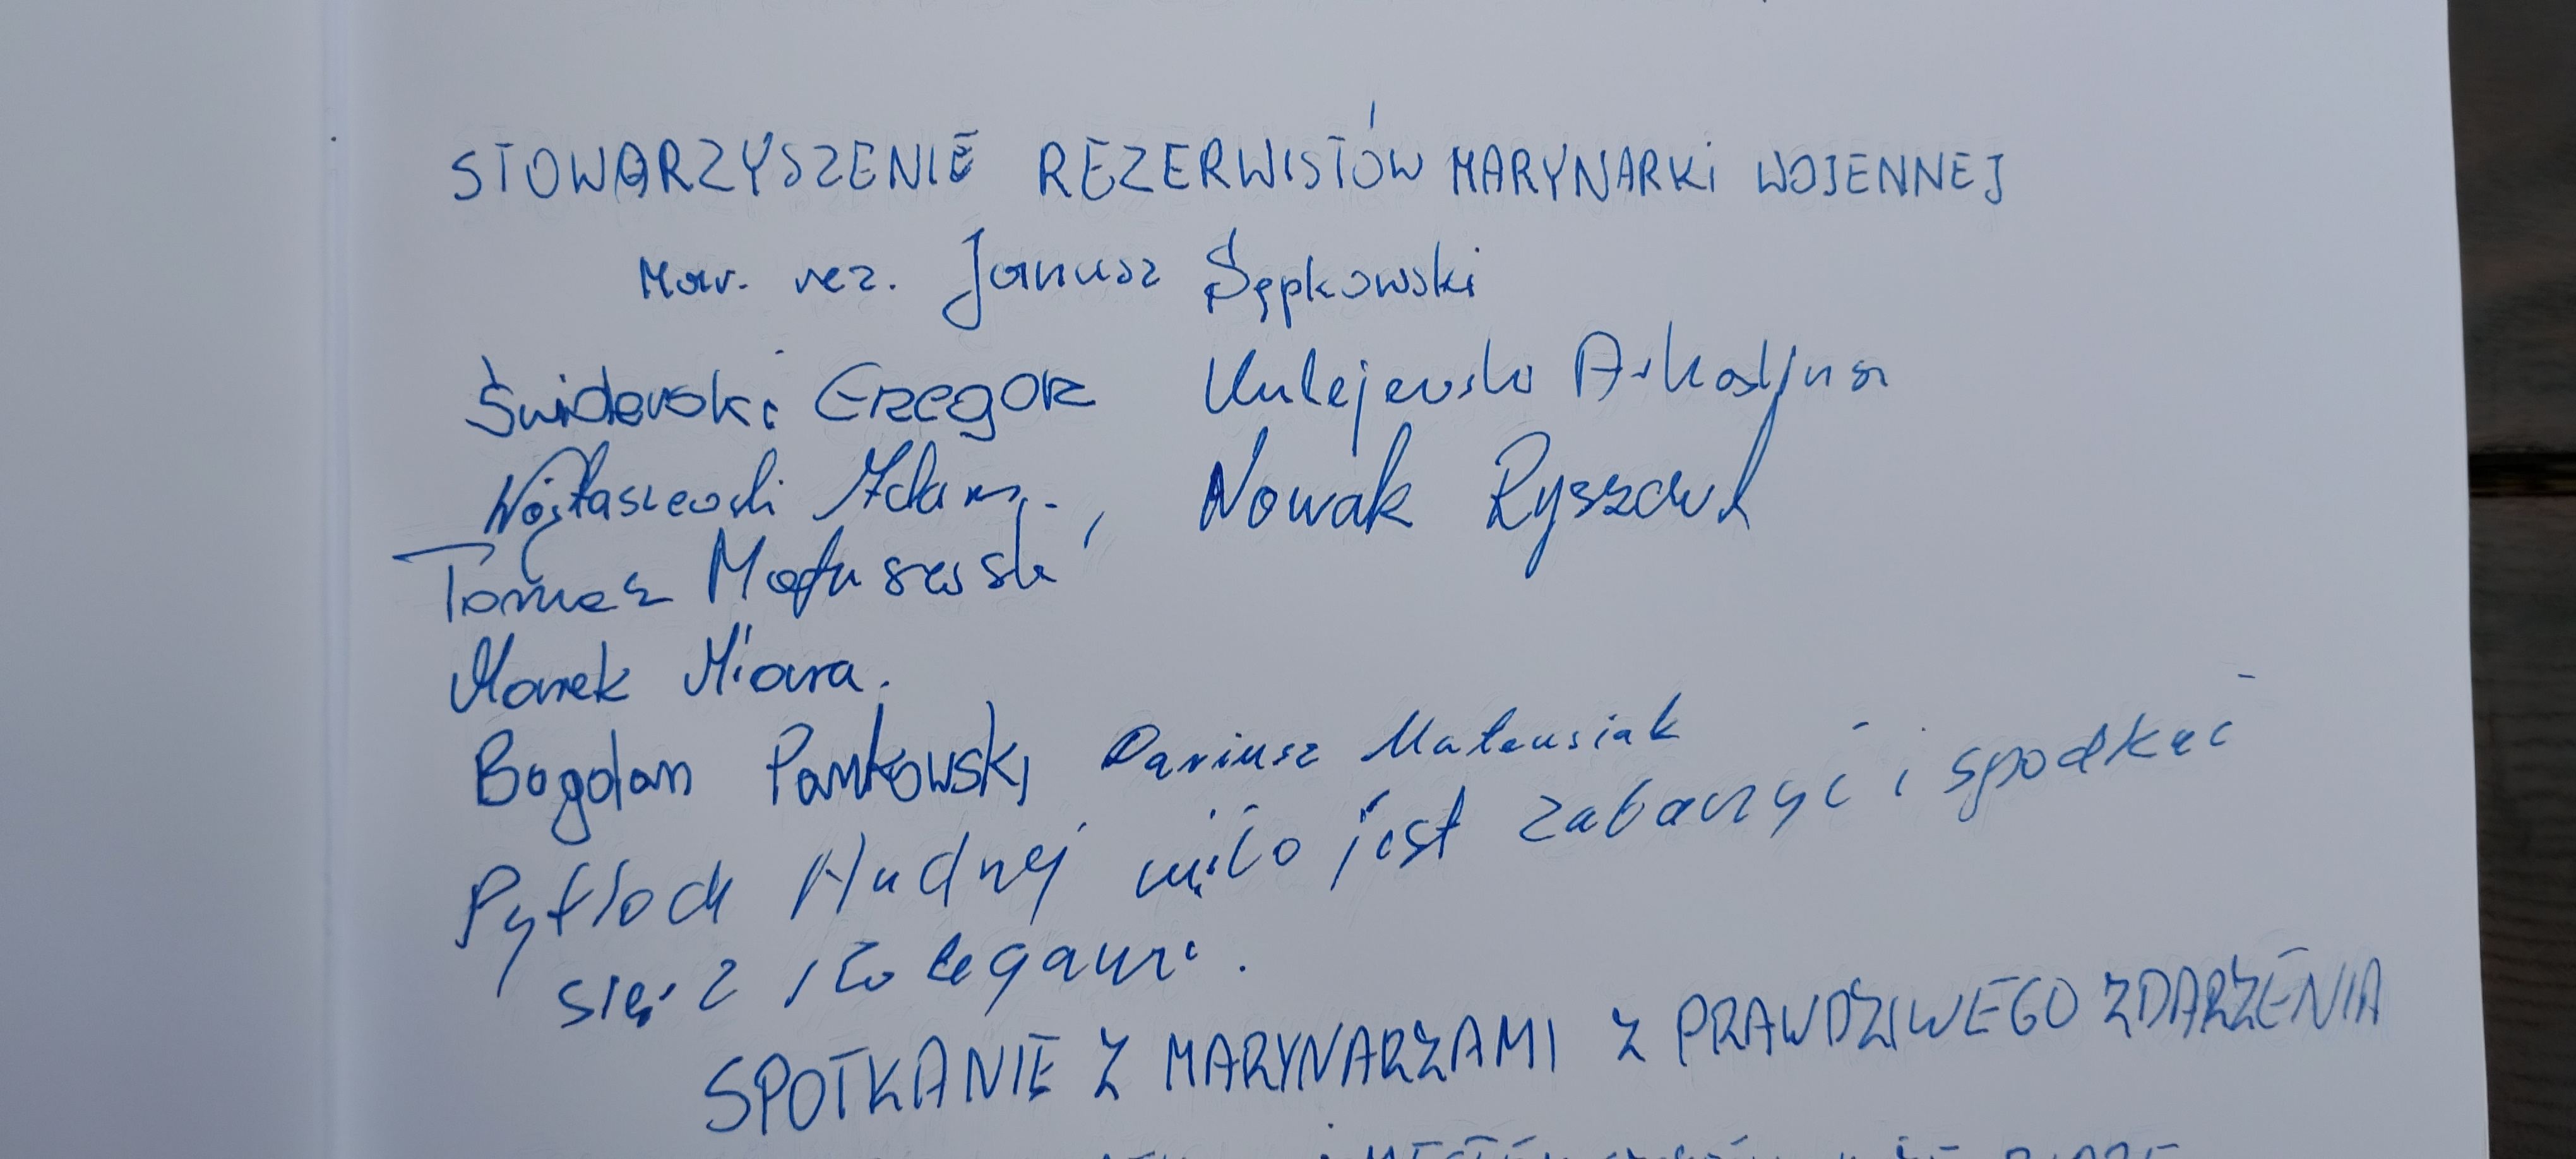 STOWARZYSZENIE REZERWISTÓW MARYNARKI WOJENNEJ
Mar. rez. Janusz Sępkowski
Świderski Grzegorz Kulejewski Arkadiusz
Wojtaszewski Adam, Nowak Ryszard
Tomasz Matuszewski
Marek Miara.
Bogdan Pankowski Dariusz Mateusiak
miło jest zobaczyć i spodkać
się z kolegami.
SPOTKANIE Z MARYNARZAMI Z PRAWDZIWEGO ZDARZENIA